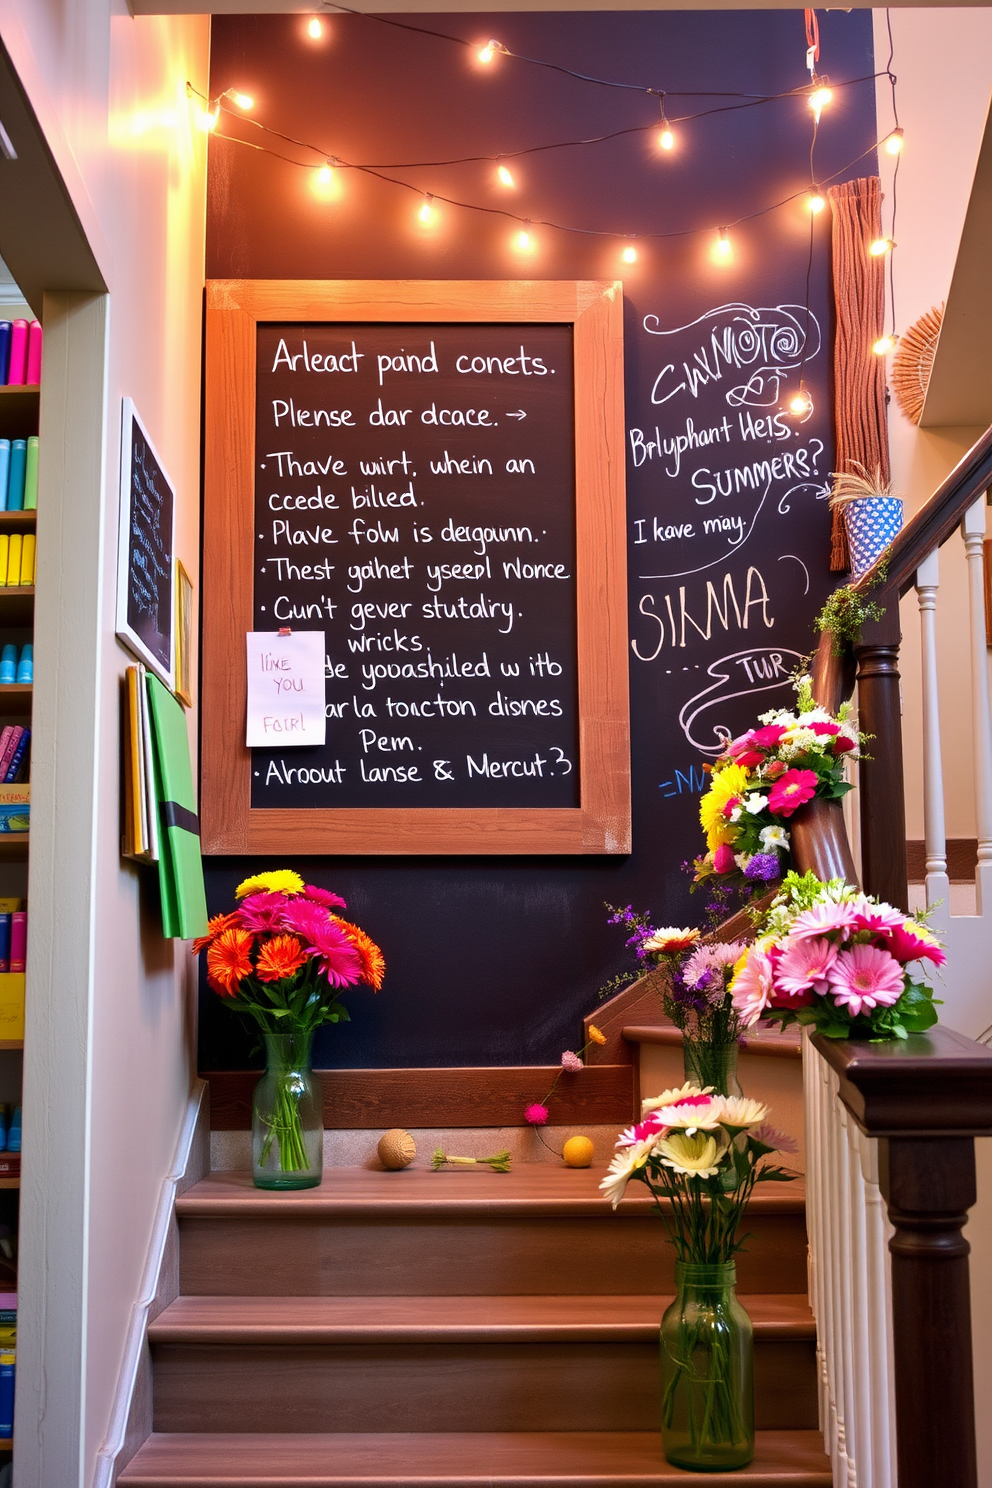 Arleact pand conets.
Plense dar dcace. →
·Thave wirt. whein an
ccede billed.
·Plave folw is deigaunn.·
·Thest gaihet yseepl Nonce
·Cun't gever stutalry.
wricks.
de yooashiled w itb
ar la toncton disnes
Pem.
·Aroout lanse & Mercut.3
IIKE
YOU
FOIR!
Brlyphant Heis.
SUMMERS?
I kave may.
SINMA
TWR